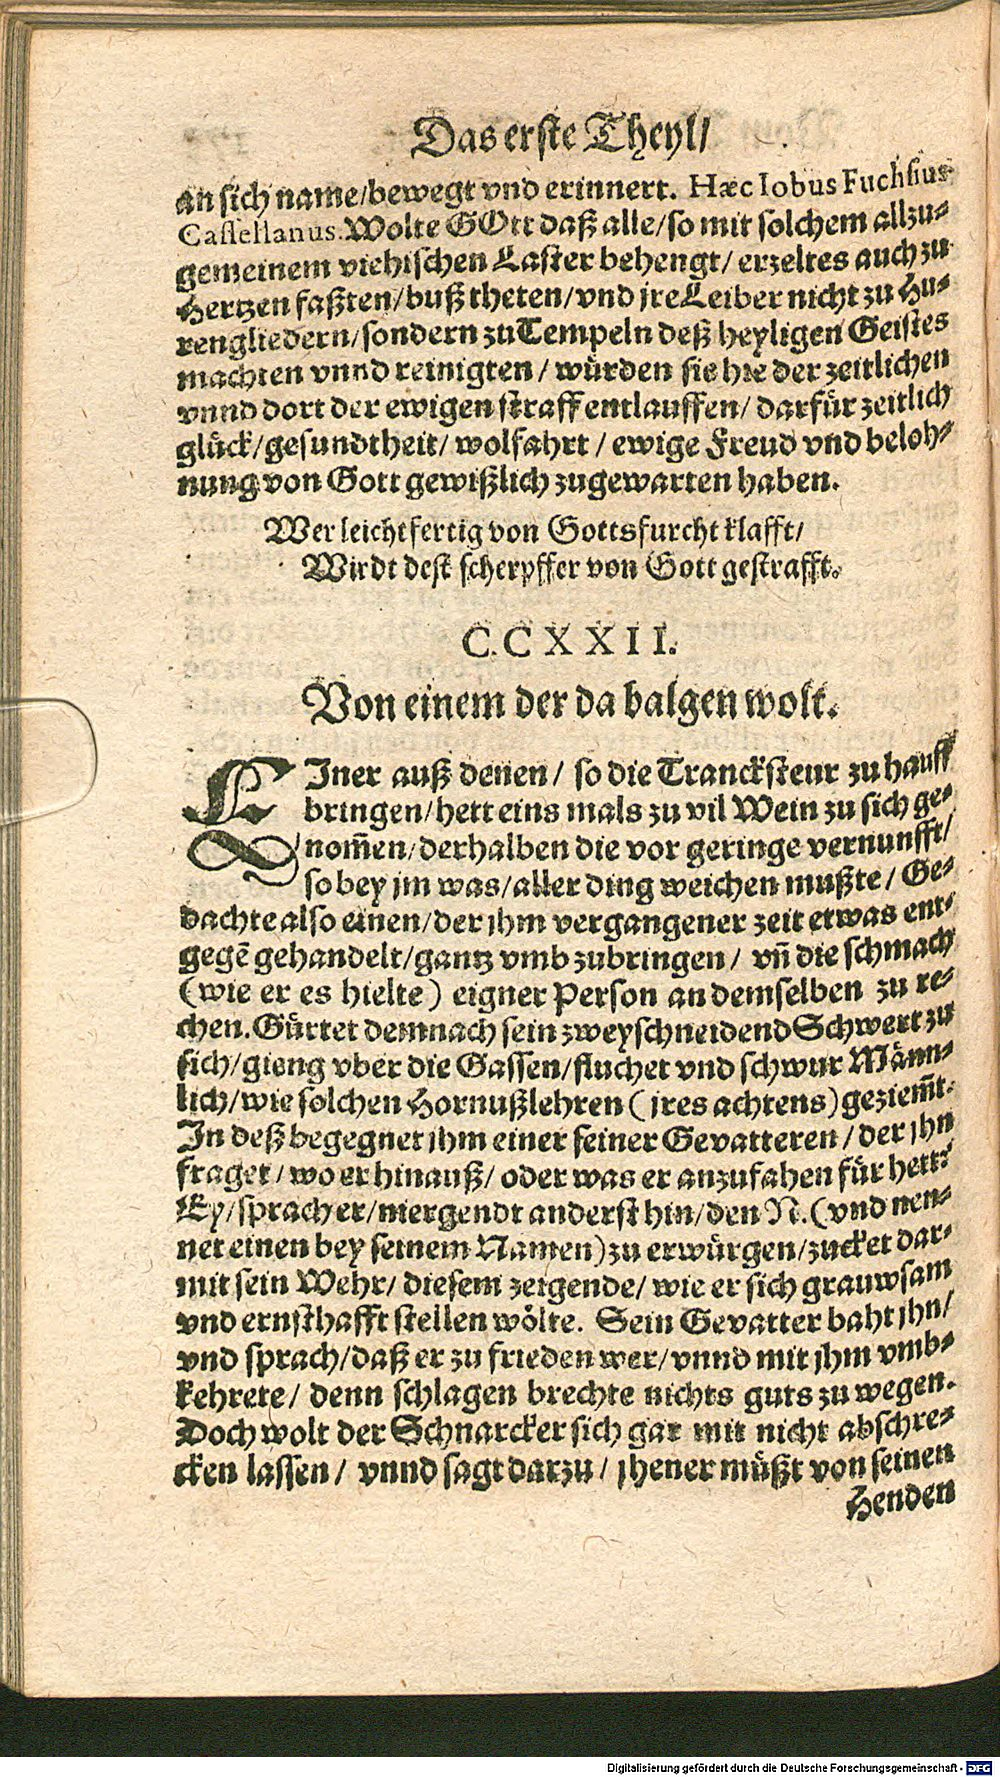 Das erste Theyl/
an sich name/bewegt vnd erinnert. Hæc Iobus Fuchsius
Castellanus. Wolte GOtt daß alle/so mit solchem allzu-
gemeinem viehischen Laster behengt/ erzeltes auch zu
Hertzen faßten/buß theten/vnd jre Leiber nicht zu Hu-
rengliedern/sondern zu Tempeln deß heyligen Geistes
machten vnnd reinigten/ würden sie hie der zeitlichen
vnnd dort der ewigen straff entlauffen/ darfür zeitlich
glück/gesundtheit/ wolfahrt / ewige Freud vnd beloh-
nung von Gott gewißlich zugewarten haben.
Wer leichtfertig von Gottsfurcht klafft/
Wirdt dest scherpffer von Gott gestrafft.
CCXXII.
Von einem der da balgen wolt.
EIner auß denen/ so die Trancksteur zu hauff
bringen/hett eins mals zu vil Wein zu sich ge-
nom̃en/derhalben die vor geringe vernunfft/
so bey jm was/aller ding weichen mußte/ Ge-
dachte also einen/der jhm vergangener zeit etwas ent-
gegẽ gehandelt/gantz vmb zubringen/ vñ die schmach
(wie er es hielte) eigner Person an demselben zu re-
chen. Gürtet demnach sein zweyschneidend Schwert zu
sich/gieng vber die Gassen/fluchet vnd schwur Männ-
lich/wie solchen Hornußlehren (jres achtens) geziem̃t.
In deß begegnet jhm einer seiner Gevatteren/der jhn
fraget/wo er hinauß/ oder was er anzufahen für hett:
Ey/sprach er/niergendt anderst hin/den N. (vnd nen-
net einen bey seinem Namen) zu erwürgen/zucket dar-
mit sein Wehr/ diesem zeigende/ wie er sich grauwsam
vnd ernsthafft stellen wölte. Sein Gevatter baht jhn/
vnd sprach/daß er zu frieden wer/vnnd mit jhm vmb-
kehrete/ denn schlagen brechte nichts guts zu wegen.
Doch wolt der Schnarcker sich gar mit nicht abschre-
cken lassen/ vnnd sagt darzu/ jhener müßt von seinen
Henden
Digitalisierung gefördert durch die Deutsche Forschungsgemeinschaft - DFG